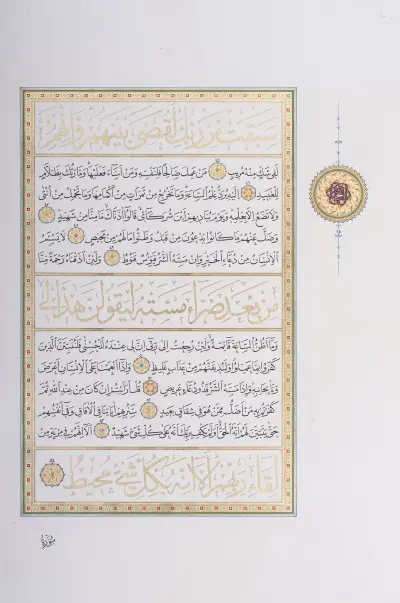 سَبَقَتْ مِنْ رَبِّكَ لَقُضِيَ بَيْنَهُمْ وَإِنَّهُمْ
لَفِي شَكٍّ مِنْهُ مُرِيبٍ ۝ مَنْ عَمِلَ صَالِحًا فَلِنَفْسِهِ وَمَنْ أَسَاءَ فَعَلَيْهَا وَمَا رَبُّكَ بِظَلَّامٍ
لِلْعَبِيدِ ۝ إِلَيْهِ يُرَدُّ عِلْمُ السَّاعَةِ وَمَا تَخْرُجُ مِنْ ثَمَرَاتٍ مِنْ أَكْمَامِهَا وَمَا تَحْمِلُ مِنْ أُنْثَى
وَلَا تَضَعُ إِلَّا بِعِلْمِهِ وَيَوْمَ يُنَادِيهِمْ أَيْنَ شُرَكَائِي قَالُوا آذَنَّاكَ مَا مِنَّا مِنْ شَهِيدٍ ۝
وَضَلَّ عَنْهُمْ مَا كَانُوا يَدْعُونَ مِنْ قَبْلُ وَظَنُّوا مَا لَهُمْ مِنْ مَحِيصٍ ۝ لَا يَسْئَمُ
الْإِنْسَانُ مِنْ دُعَاءِ الْخَيْرِ وَإِنْ مَسَّهُ الشَّرُّ فَيَئُوسٌ قَنُوطٌ ۝ وَلَئِنْ أَذَقْنَاهُ رَحْمَةً مِنَّا
مِنْ بَعْدِ ضَرَّاءَ مَسَّتْهُ لَيَقُولَنَّ هَذَا لِي
وَمَا أَظُنُّ السَّاعَةَ قَائِمَةً وَلَئِنْ رُجِعْتُ إِلَى رَبِّي إِنَّ لِي عِنْدَهُ لَلْحُسْنَى فَلَنُنَبِّئَنَّ الَّذِينَ
كَفَرُوا بِمَا عَمِلُوا وَلَنُذِيقَنَّهُمْ مِنْ عَذَابٍ غَلِيظٍ ۝ وَإِذَا أَنْعَمْنَا عَلَى الْإِنْسَانِ أَعْرَضَ
وَنَأَى بِجَانِبِهِ وَإِذَا مَسَّهُ الشَّرُّ فَذُو دُعَاءٍ عَرِيضٍ ۝ قُلْ أَرَأَيْتُمْ إِنْ كَانَ مِنْ عِنْدِ اللَّهِ ثُمَّ
كَفَرْتُمْ بِهِ مَنْ أَضَلُّ مِمَّنْ هُوَ فِي شِقَاقٍ بَعِيدٍ ۝ سَنُرِيهِمْ آيَاتِنَا فِي الْآفَاقِ وَفِي أَنْفُسِهِمْ
حَتَّى يَتَبَيَّنَ لَهُمْ أَنَّهُ الْحَقُّ أَوَلَمْ يَكْفِ بِرَبِّكَ أَنَّهُ عَلَى كُلِّ شَيْءٍ شَهِيدٌ ۝ أَلَا إِنَّهُمْ فِي مِرْيَةٍ مِنْ
لِقَاءِ رَبِّهِمْ أَلَا إِنَّهُ بِكُلِّ شَيْءٍ مُحِيطٌ ۝
سُورَةُ